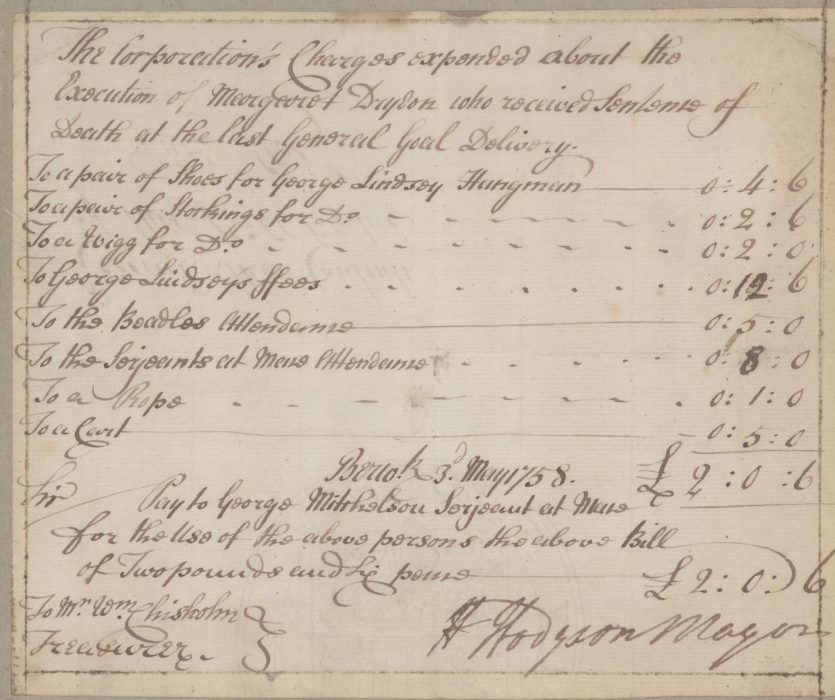 The Corporation's Charges expended about the
Execution of Margaret Dryden who received Sentence of
Death at the last General Goal Delivery.
To a pair of Shoes for George Lindsey Hangman 0: 4: 6
To a pair of Stockings for Do 0: 2: 6
To a Wigg for Do 0: 2: 0
To George Lindseys ffees 0: 12: 6
To the Beadles Attendance 0: 5: 0
To the Serjeants at Mace Attendance 0: 8: 0
To a Rope 0: 1: 0
To a Cart 0: 5: 0
Berwk. 3d May 1758. £ 2: 0: 6
Sir
Pay to George Mitchelson Serjeant at Mace
for the Use of the above persons the above Bill
of Two pounds and Six pence £ 2: 0: 6
To Mr. Wm. Chisholm
Treasurer. H Hodgson Mayor